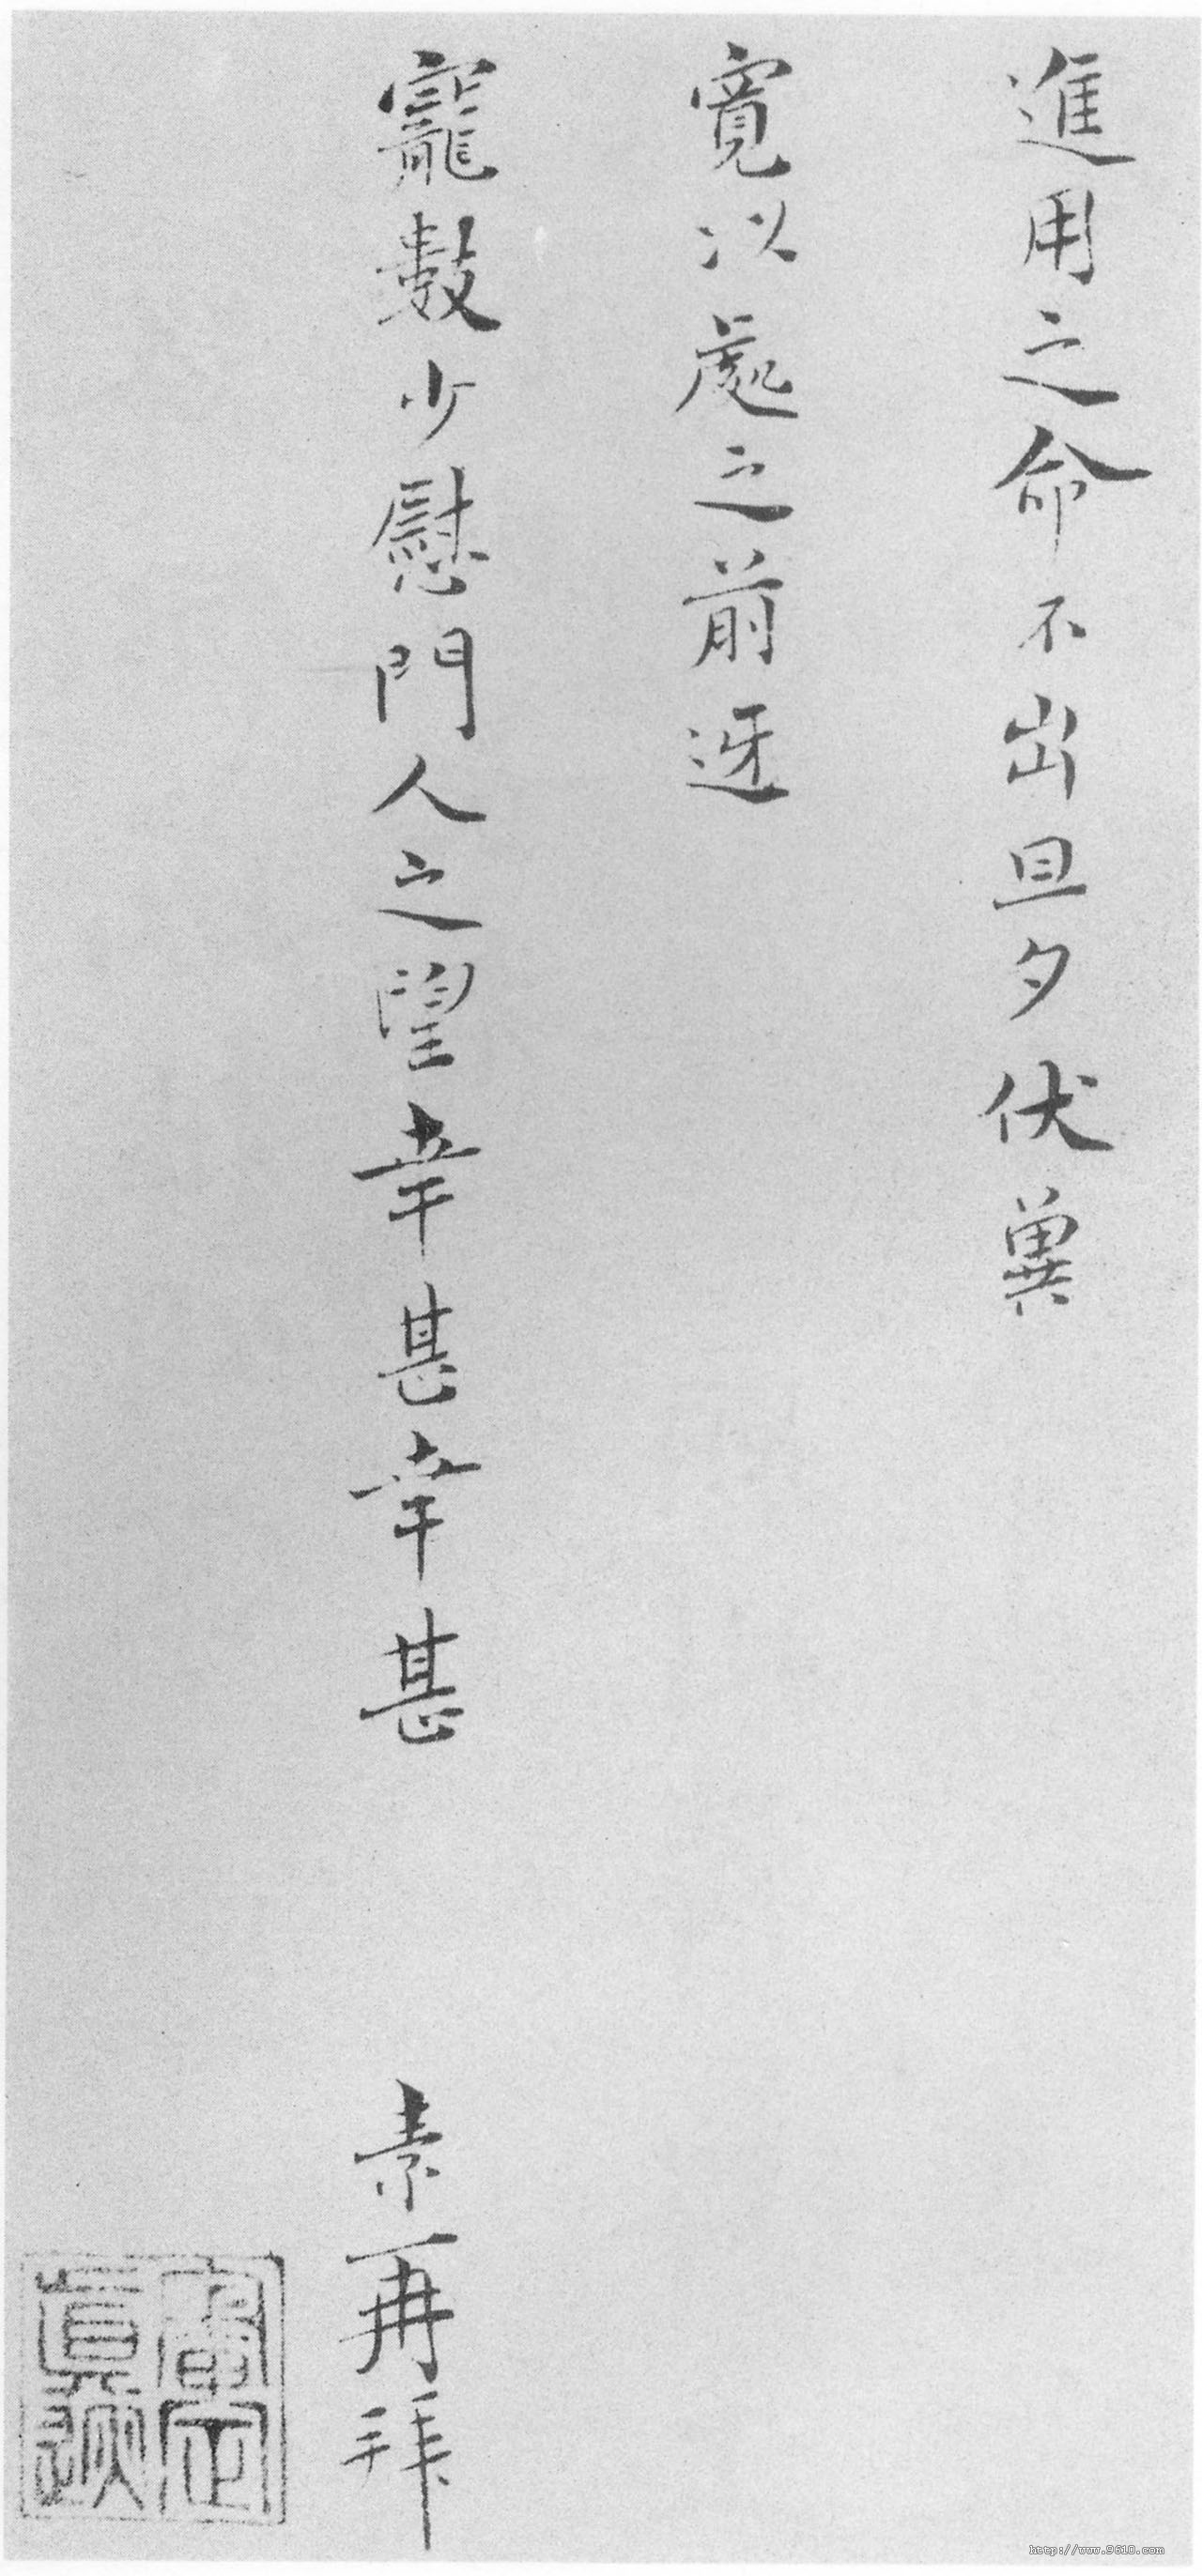 進用之命不出旦夕伏冀
寬以處之前迓
寵數少慰門人之望幸甚幸甚
素再拜
審定
真跡
http://www.9610.com